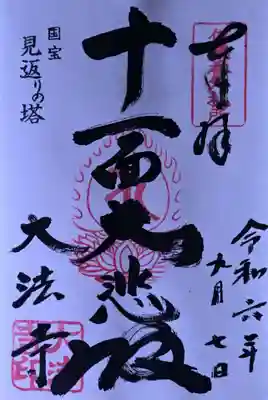 奉拝
令和六年
九月七日
十一面大悲殿
国宝
見返りの塔
大法寺